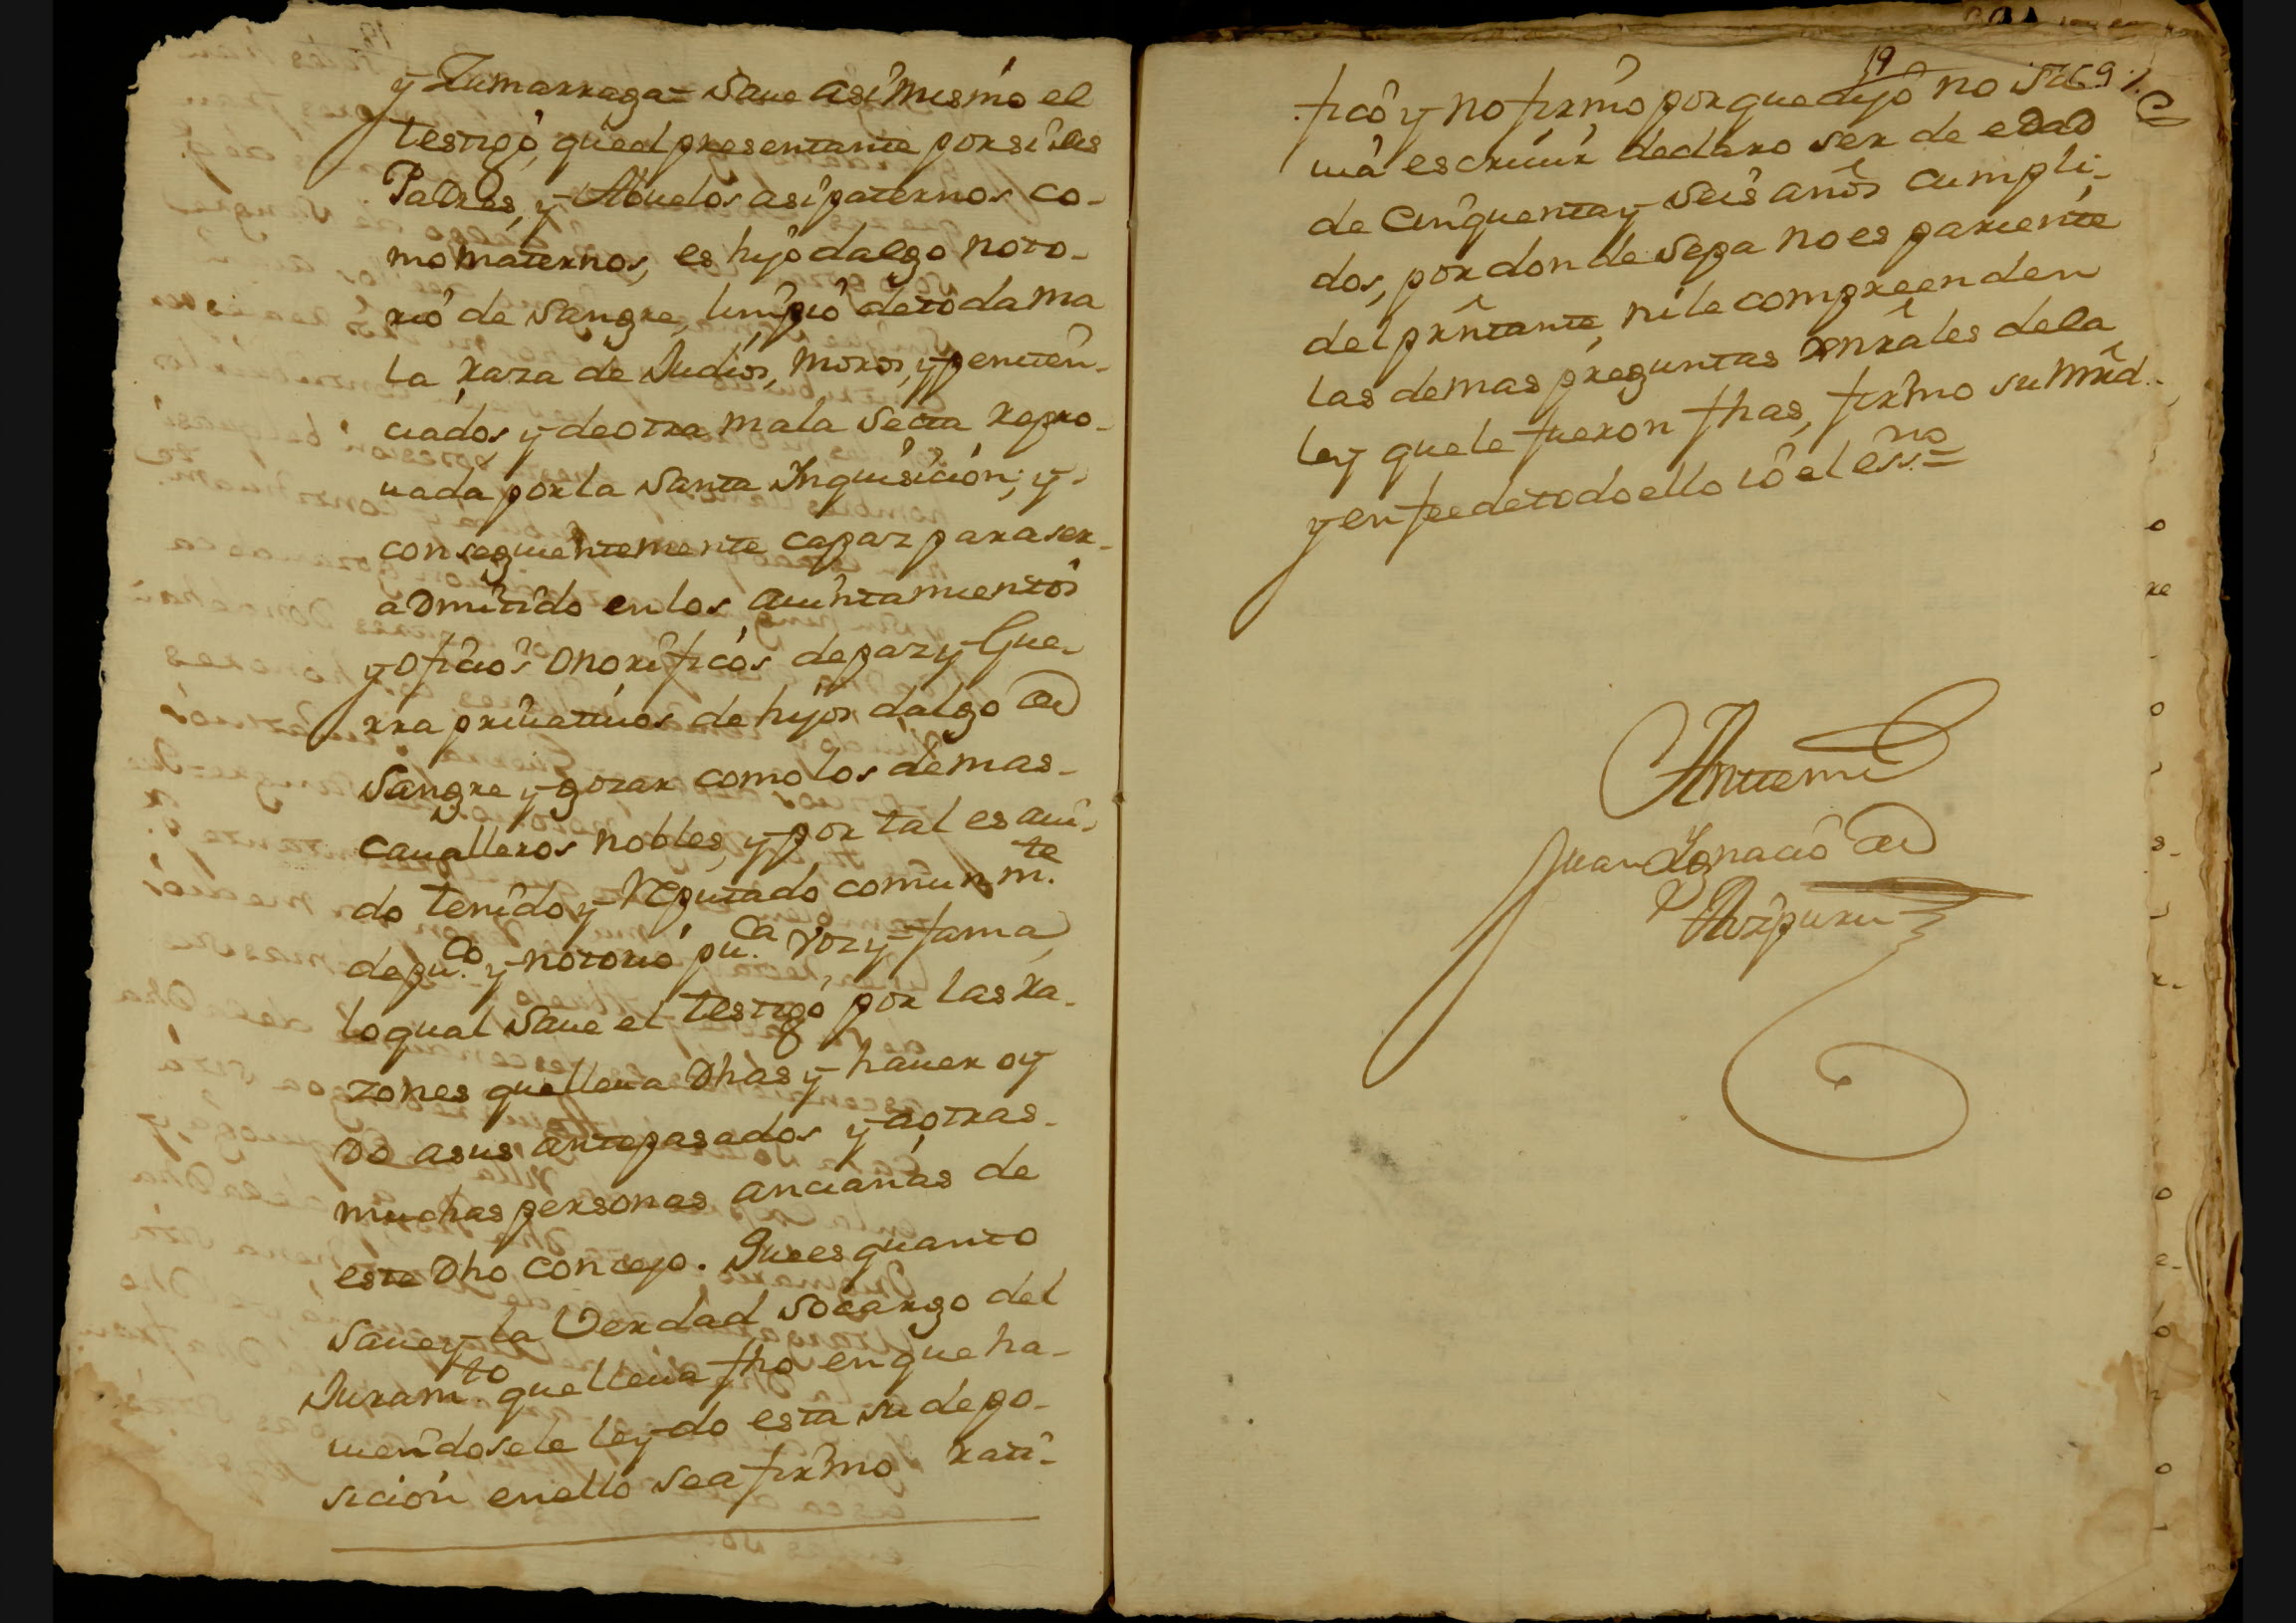 y Zumarraga = Save asi mismo el
testigo, que el presentante por si sus
Padres, y Abuelos asi paternos co-
mo maternos, es hijo dalgo noto-
rio de Sangre, limpio de toda ma
la raza de Judios, moros, y peniten-
ciados y de otra mala Secta repro-
vada por la Santa Inquisicion; y
conseguientemente capaz para ser
admitido en los aiuntamientos
y oficios onorificos de paz y Gue-
rra privativos de hijos dalgo de
Sangre y gozar como los demas
cavalleros nobles, y por tal es avi-
do tenido y Reputado comunm.te
de pu.co y notorio pu.ca voz y fama
lo qual Save el testigo por las ra-
zones que lleva Dhas y haver oy
do a sus antepasados y a otras
muchas personas ancianas de
este Dho concejo. Que es quanto
Save y la Verdad, so cargo del
Juram.to que lleva fho en que ha-
viendosele leydo esta su depo-
sicion en ello se afirmo rati-
19
69
ficó y no firmo porque dijo no sa
via escrivir declaro ser de edad
de cinquenta y seis años cumpli-
dos, por donde sepa no es pariente
del prntante, ni le compreenden
las demas preguntas Genrales de la
ley que le fueron fhas, firmo su mrd.
y en fee de todo ello io el ess.no =
Ante mi
Juan Ygnacio de
Azpuru
o
re
o
s-
r-
o
e-
o
o